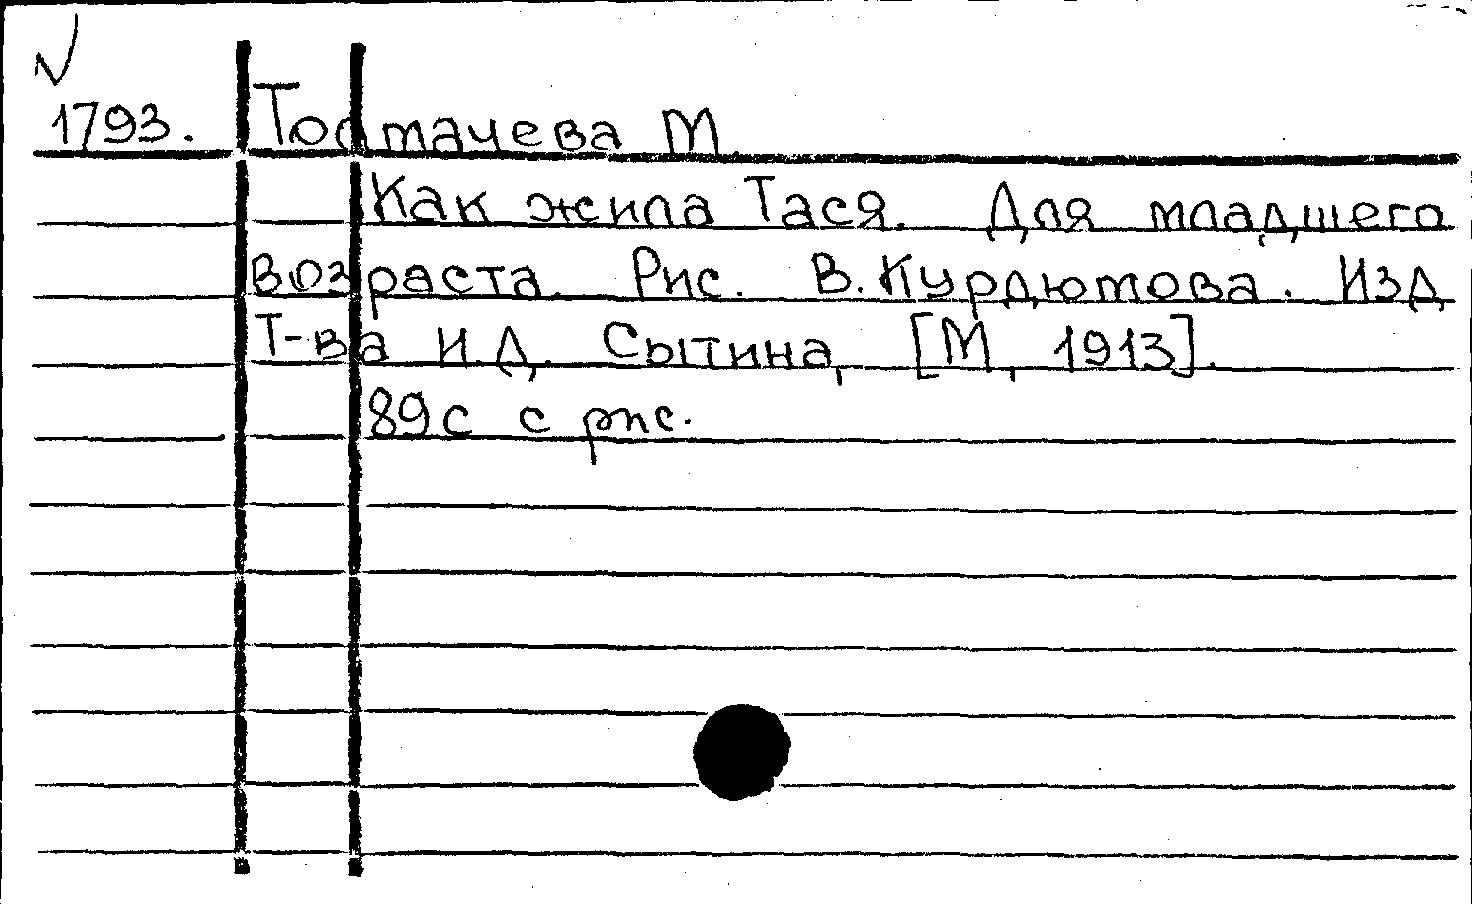 1793. Толмачева М.
Как жила Тася. Для младшего
возраста. Рис. В. Курдюмова. Изд.
Т-ва И.Д. Сытина, [М., 1913].
89с с рис.